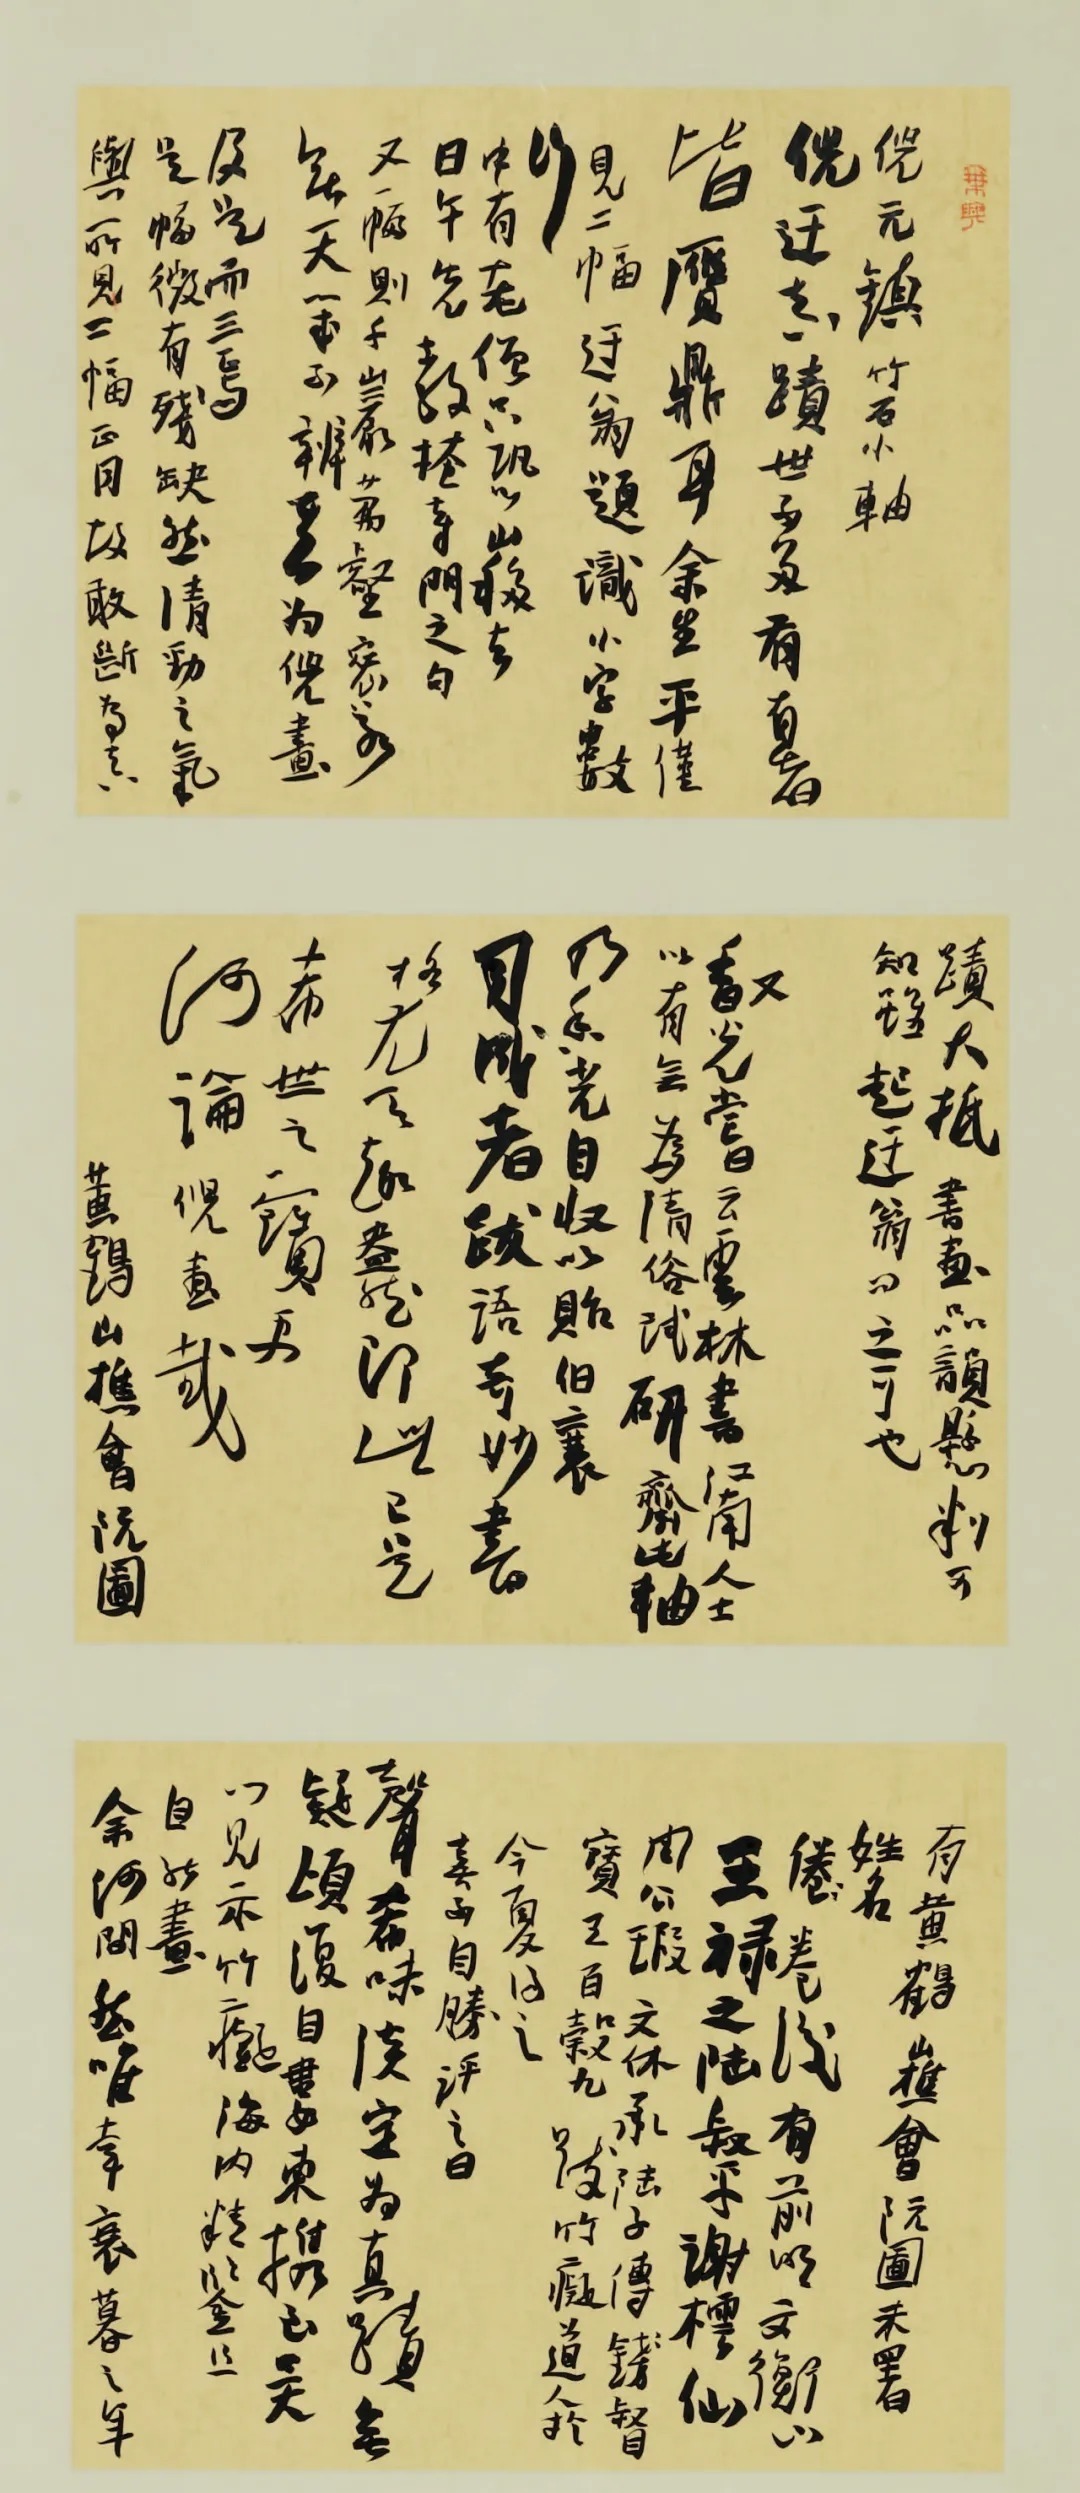 倪元鎮竹石小軸
倪迂真蹟世不多有有者
皆贋鼎耳余生平僅
見二幅迂翁題識小字數
行
中有老僧只恐山移去
日午先教掩寺門之句
又一幅則千巖萬壑窠
無天筆不辨其為倪畫
及是而三焉
是幅微有殘缺然清勁之氣
與所見二幅正同故敢斷為真
蹟大抵書畫品韻懸判可
知雖起迂翁問之可也
又
香光嘗云雲林書江南人士
以有無為清俗試研齋此軸
乃香光自收以貽伯襄
司成者跋語奇妙書
格尤天趣盎然即此已是
希世之寶矣
何論倪畫哉
黃鶴山樵會阮圖
有黃鶴山樵會阮圖未署
姓名
倦卷後有前明文衡山
王祿之陸叔平謝樗仙
周公瑕文休承陸子傳錢督
寶王百穀九跋竹癡道人於
今夏得之
喜不自勝評之曰
聲希味淡定為真蹟無
疑頃復自婁東攜至吴
以見示竹癡海內精鑒且
自能畫
余何間然唯幸衰暮之年